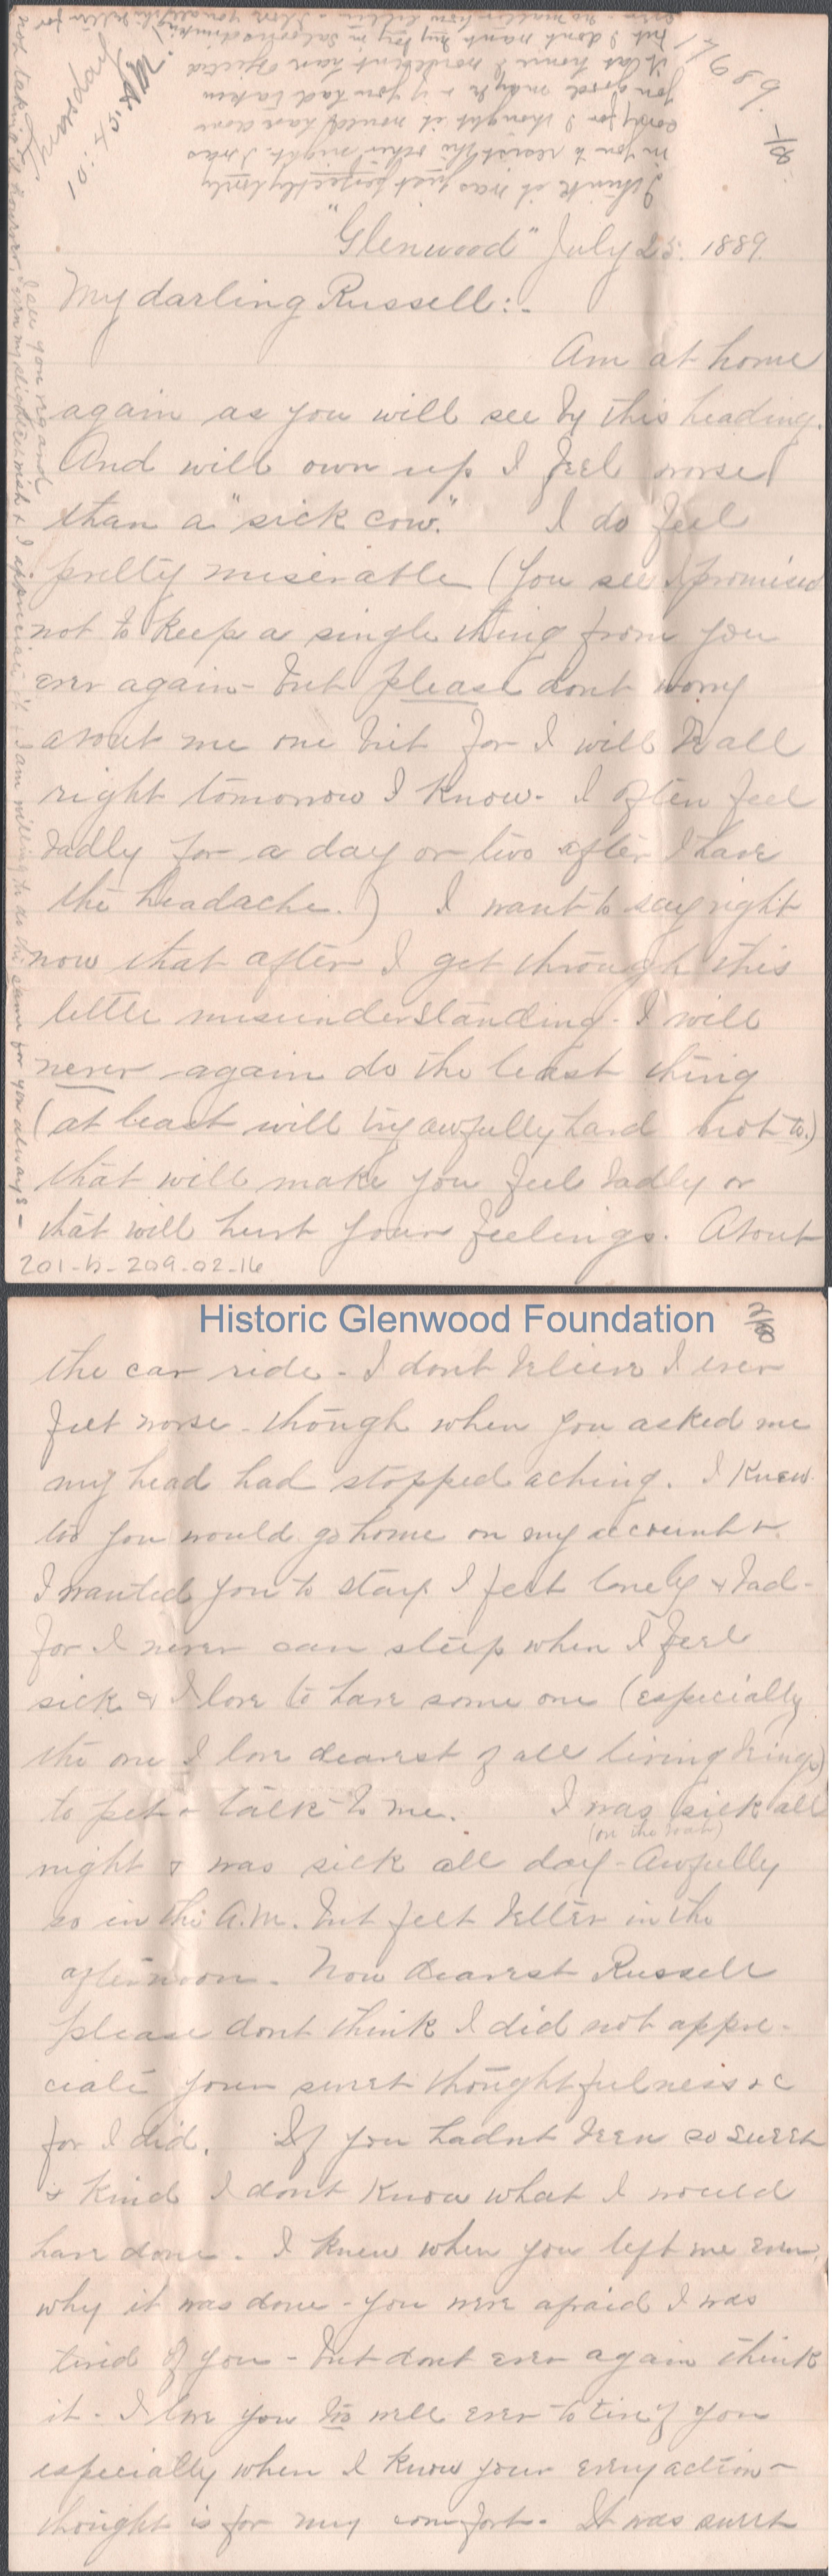 Thursday
10:45 A.M.
1689.
1/8
I think it was just perfectly lovely
in you to resist the other night. I was
sorry for I thought it would have done
you good maybe & if you had taken
it at home I wouldn't have objected
but I dont want my boy in saloons drinking
"Glenwood" July 25. 1889.
My darling Russell:-
Am at home
again as you will see by this heading.
And will own up I feel worse
than a "sick cow." I do feel
pretty miserable (You see I promised
not to keep a single thing from you
ever again - but please dont worry
about me one bit for I will be all
right tomorrow I know - I often feel
badly for a day or two after I have
the headache.) I want to say right
now that after I get through this
little misunderstanding - I will
never again do the least thing
(at least will try awfully hard not to.)
that will make you feel badly or
that will hurt your feelings. About
not taking it however, I see you regard
even my slightest wish & I appreciate it & I am willing to do the same for you always -
201-b-209-02-16
Historic Glenwood Foundation
2/8
the car ride - I dont believe I ever
felt worse - though when you asked me
my head had stopped aching. I knew
too you would go home on my account &
I wanted you to stay. I felt lonely & bad -
for I never can sleep when I feel
sick & I love to have some one (especially
the one I love dearest of all living beings)
to pet & talk to me. I was sick all
(on the boat)
night & was sick all day - Awfully
so in the A.M. but felt better in the
afternoon. Now dearest Russell
please dont think I did not appre-
ciate your sweet thoughtfulness &c
for I did. If you hadnt been so sweet
& kind I dont know what I would
have done. I knew when you left me even,
why it was done - you were afraid I was
tired of you - but dont ever again think
it - I love you too well ever to tire of you
especially when I know your every action -
thought is for my comfort. It was sweet